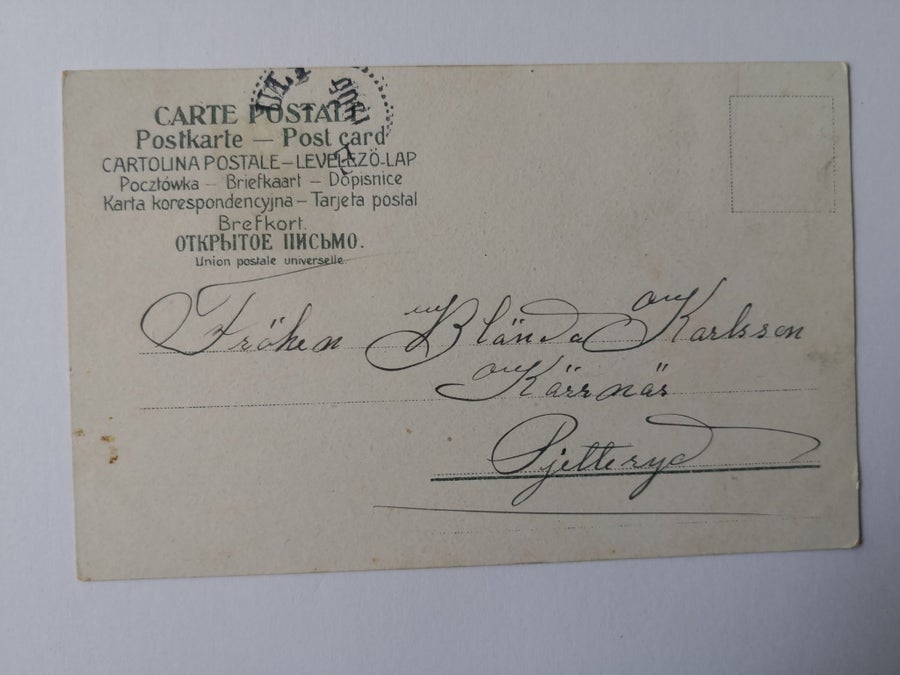 CARTE POSTALE
Postkarte — Post card
CARTOLINA POSTALE – LEVELEZÖ-LAP
Pocztówka – Briefkaart – Dopisnice
Karta korespondencyjna – Tarjeta postal
Brefkort.
ОТКРЫТОЕ ПИСЬМО.
Union postale universelle.
Fröken Blända Karlsson
Kärrnäs
Pjetteryd